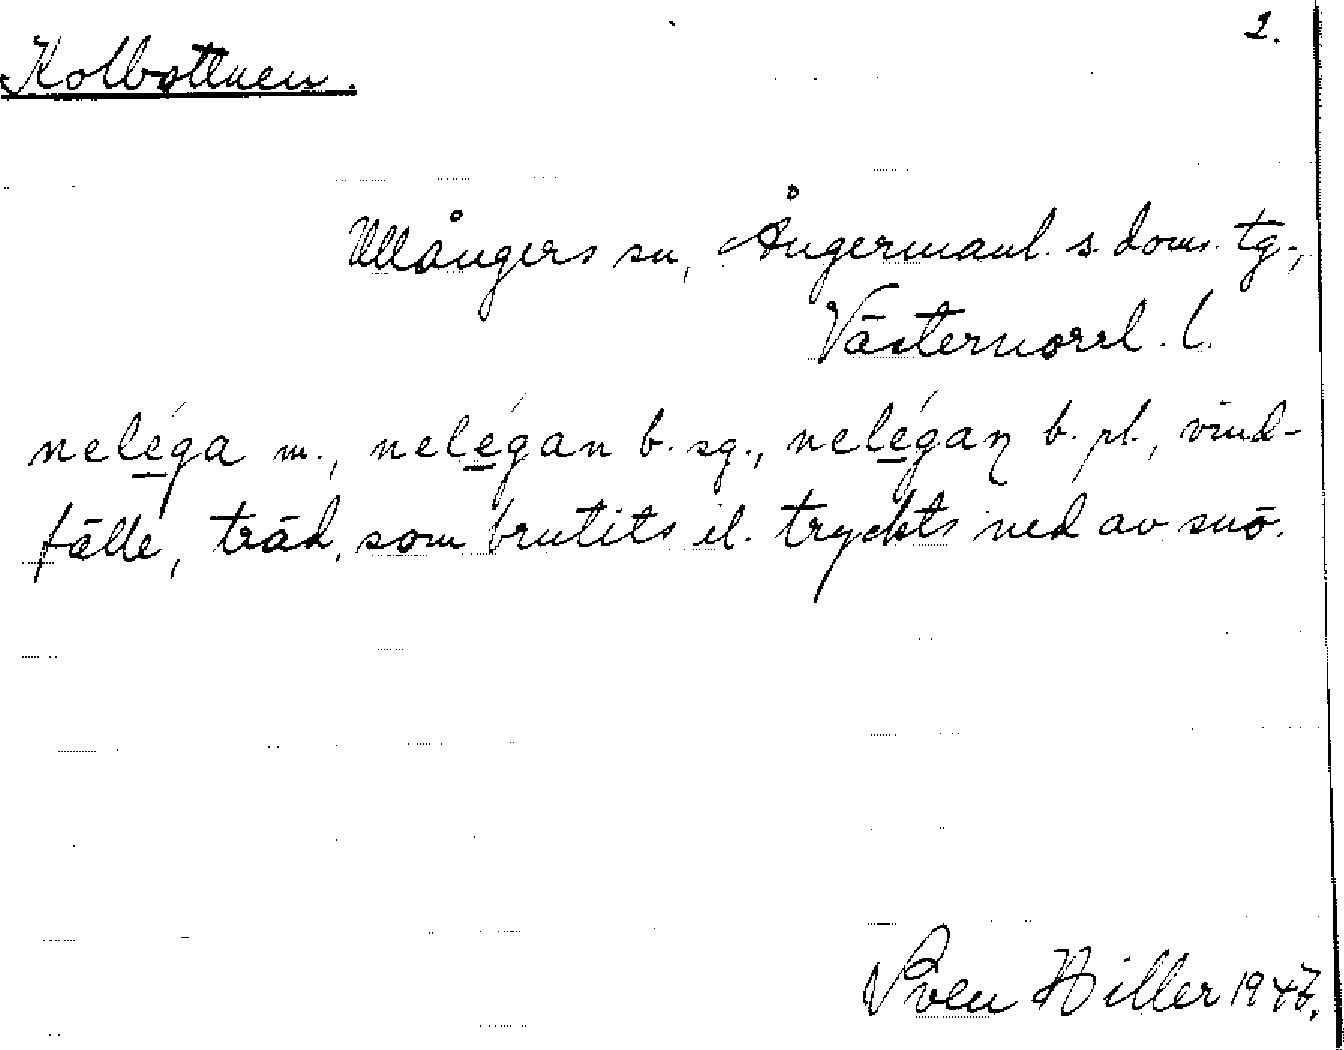 2.
Kolbottnen.
Ullångers sn, Ångermanl. s. doms. tg.,
Västernorrl. l.
neléga m., nelégan b. sg., nelégaɳ b. pl., vind-
fälle, träd, som brutits el. tryckts ned av snö.
Sven Hiller 1947.